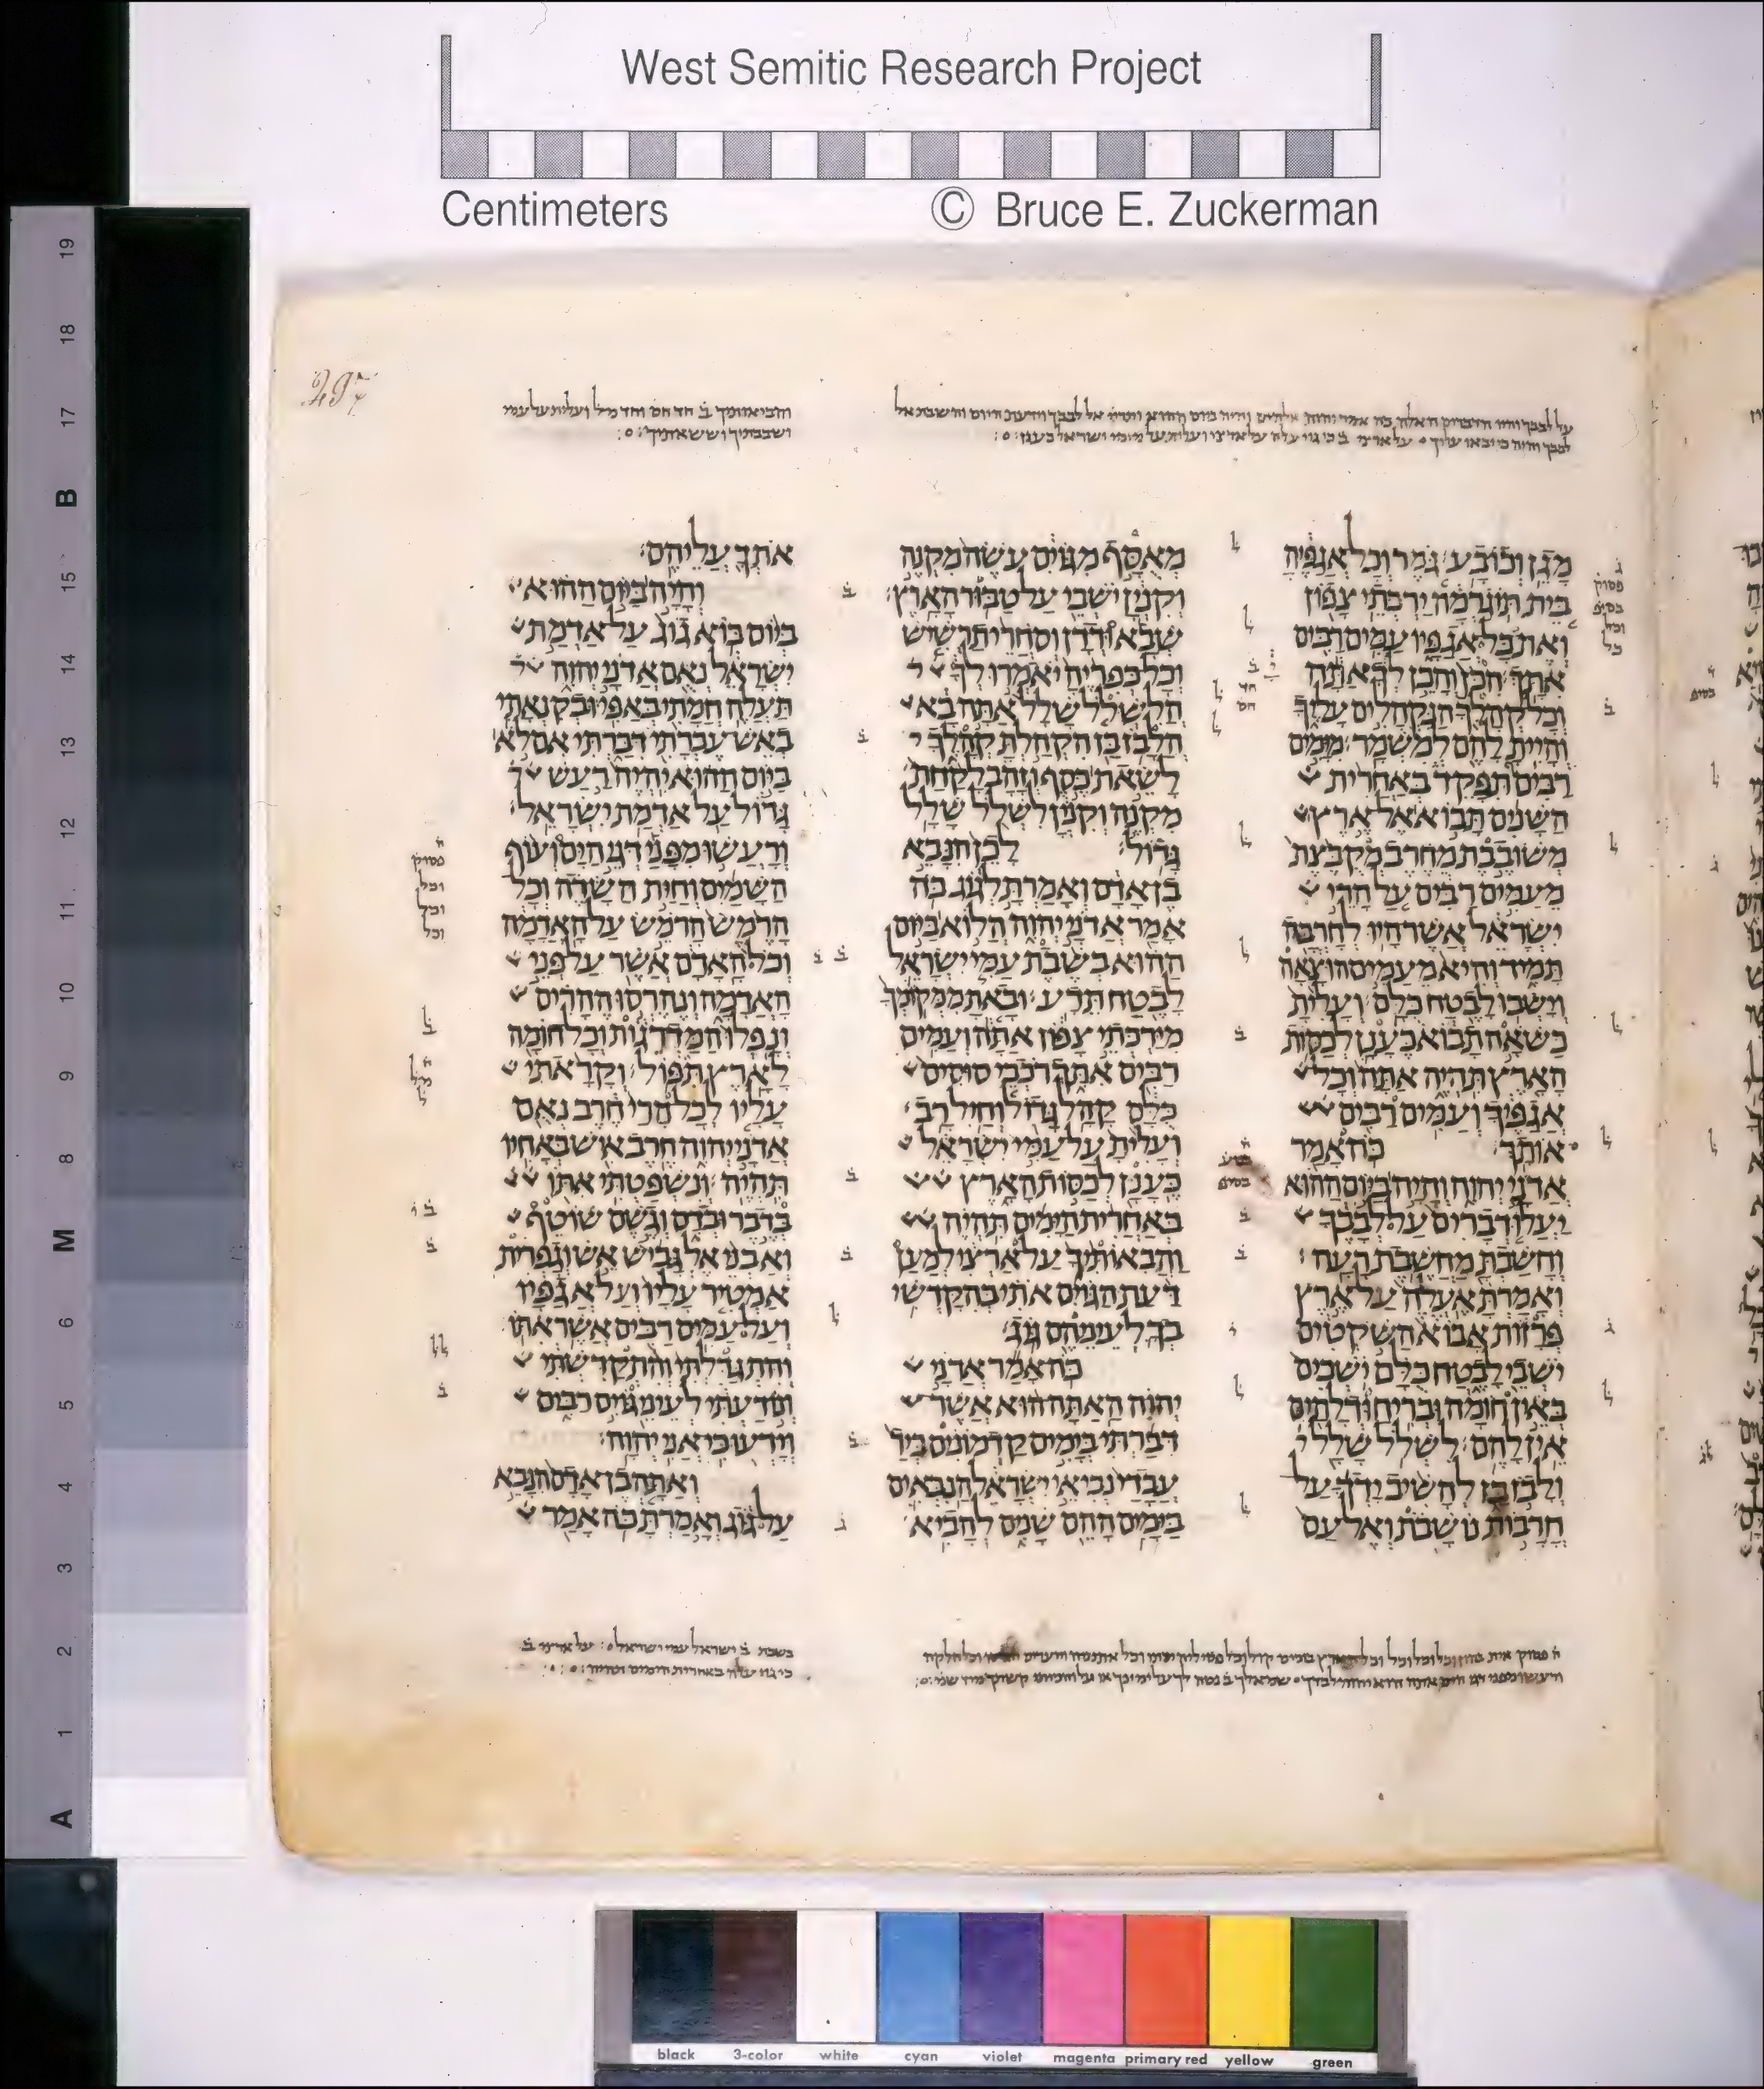 West Semitic Research Project
Centimeters © Bruce E. Zuckerman
297
על לבבך והיו הדברים האלה
לבבך והיה כי יבאו עליך על ארצי ב כי גוי עלה על ארצי ועלית על עמי ישראל כענן
והביאותיך ב חד חס וחד מל ועלית על עמי
ושבבתיך וששאתיך
מגן וכובע׃ גמר וכל אגפיה
בית תוגרמה ירכתי צפון
ואת כל אגפיו עמים רבים
אתך׃ הכן והכן לך אתה
וכל קהלך הנקהלים עליך
והיית להם למשמר׃ מימים
רבים תפקד באחרית
השנים תבוא אל ארץ
משובבת מחרב מקבצת
מעמים רבים על הרי
ישראל אשר היו לחרבה
תמיד והיא מעמים הוצאה
וישבו לבטח כלם׃ ועלית
כשאה תבוא כענן לכסות
הארץ תהיה אתה וכל
אגפיך ועמים רבים
אותך׃ כה אמר
אדני יהוה והיה ביום ההוא
יעלו דברים על לבבך
וחשבת מחשבת רעה׃
ואמרת אעלה על ארץ
פרזות אבוא השקטים
ישבי לבטח כלם ישבים
באין חומה ובריח ודלתים
אין להם׃ לשלל שלל
ולבז בז להשיב ידך על
חרבות נושבת ואל עם
מאסף מגוים עשה מקנה
וקנין ישבי על טבור הארץ׃
שבא ודדן וסחרי תרשיש
וכל כפריה יאמרו לך
הלשלל שלל אתה בא
הלבז בז הקהלת קהלך
לשאת כסף וזהב לקחת
מקנה וקנין לשלל שלל
גדול׃ לכן הנבא
בן אדם ואמרת לגוג כה
אמר אדני יהוה הלוא ביום
ההוא בשבת עמי ישראל
לבטח תדע׃ ובאת ממקומך
מירכתי צפון אתה ועמים
רבים אתך רכבי סוסים
כלם קהל גדול וחיל רב׃
ועלית על עמי ישראל
כענן לכסות הארץ
באחרית הימים תהיה
והבאותיך על ארצי למען
דעת הגוים אתי בהקדשי
בך לעיניהם גוג׃
כה אמר אדני
יהוה האתה הוא אשר
דברתי בימים קדמונים ביד
עבדי נביאי ישראל הנבאים
בימים ההם שנים להביא
אתך עליהם׃
והיה ביום ההוא
ביום בוא גוג על אדמת
ישראל נאם אדני יהוה
תעלה חמתי באפי׃ ובקנאתי
באש עברתי דברתי אם לא
ביום ההוא יהיה רעש
גדול על אדמת ישראל׃
ורעשו מפני דגי הים ועוף
השמים וחית השדה וכל
הרמש הרמש על האדמה
וכל האדם אשר על פני
האדמה ונהרסו ההרים
ונפלו המדרגות וכל חומה
לארץ תפול׃ וקראתי
עליו לכל הרי חרב נאם
אדני יהוה חרב איש באחיו
תהיה׃ ונשפטתי אתו
בדבר ובדם וגשם שוטף
ואבני אלגביש אש וגפרית
אמטיר עליו ועל אגפיו
ועל עמים רבים אשר אתו׃
והתגדלתי והתקדשתי
ונודעתי לעיני גוים רבים
וידעו כי אני יהוה׃
ואתה בן אדם הנבא
על גוג ואמרת כה אמר
בשבת ב ישראל עמי ישראל על ארצי ב
כי גוי עלה באחרית הימים
19
18
17
B
15
14
13
12
11
10
9
8
M
6
5
4
3
2
1
A
black 3-color white cyan violet magenta primary red yellow green